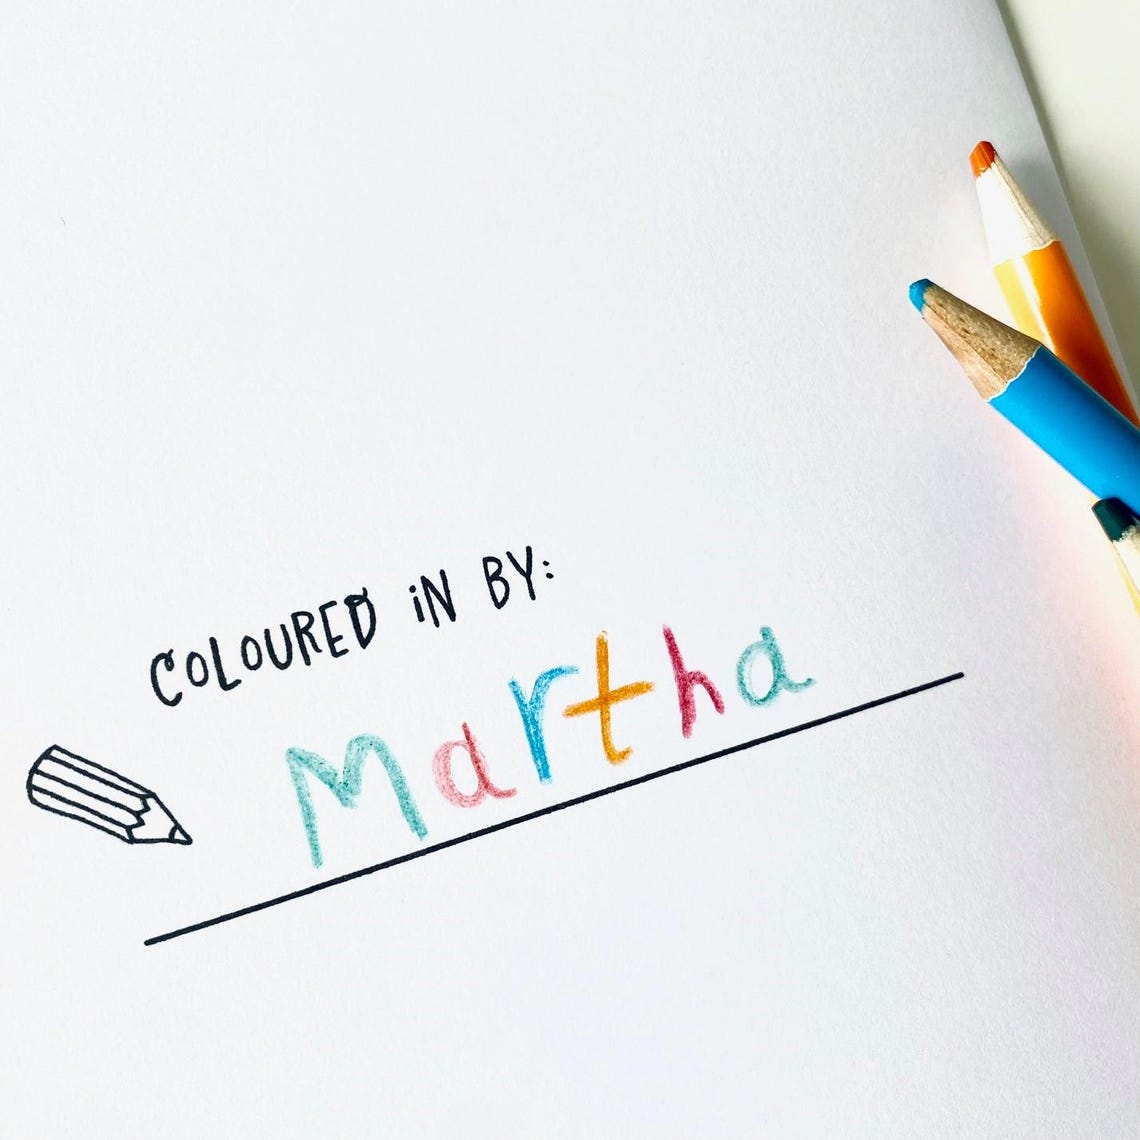 COLOURED iN BY:
Martha